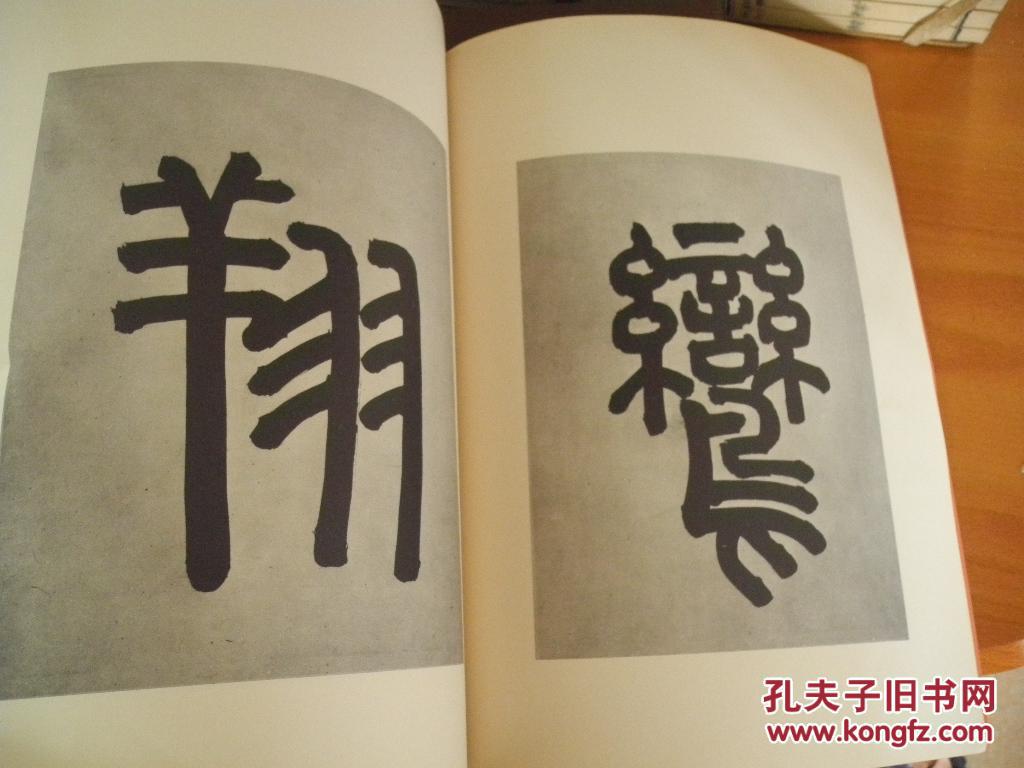 鸞
翔
孔夫子旧书网
www.kongfz.com